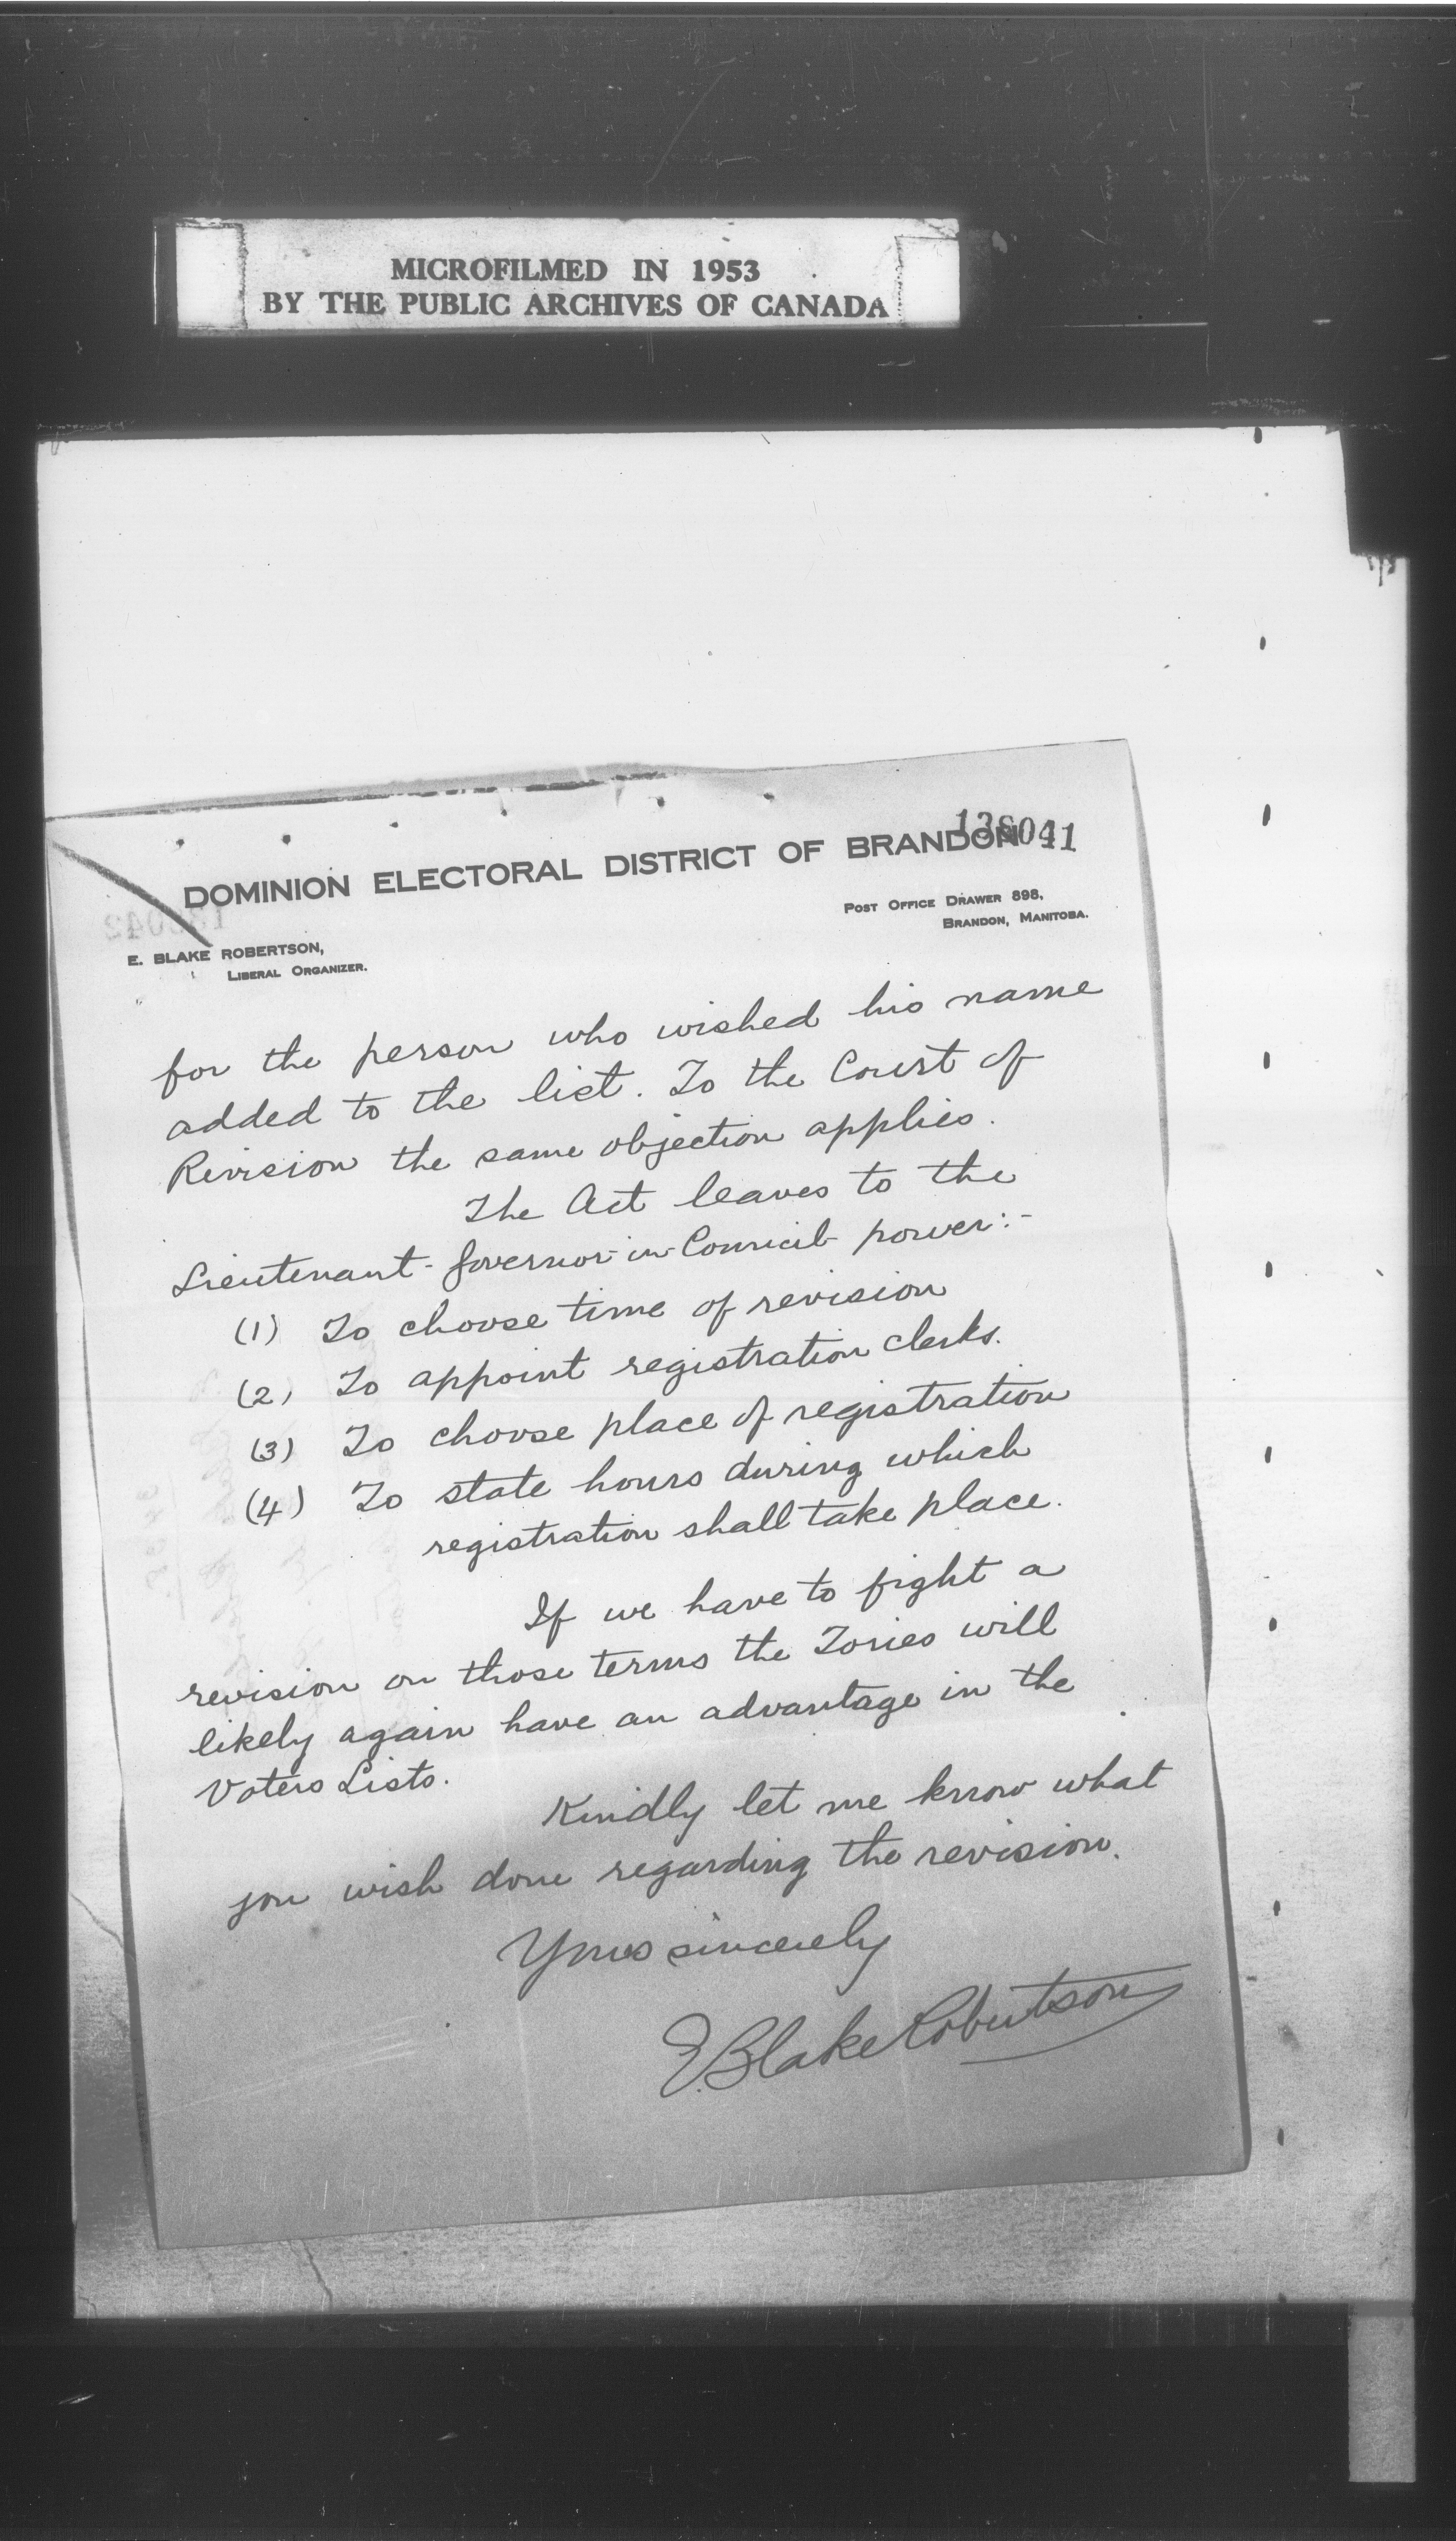 MICROFILMED IN 1953
BY THE PUBLIC ARCHIVES OF CANADA
DOMINION ELECTORAL DISTRICT OF BRANDON
POST OFFICE DRAWER 898,
BRANDON, MANITOBA.
E. BLAKE ROBERTSON,
LIBERAL ORGANIZER.
for the person who wished his name
added to the list. To the Court of
Revision the same objection applies.
The Act leaves to the
Lieutenant-Governor-in-Council power:-
(1) To choose time of revision
(2) To appoint registration clerks.
(3) To choose place of registration
(4) To state hours during which
registration shall take place.
If we have to fight a
revision on those terms the Tories will
likely again have an advantage in the
Voters Lists.
Kindly let me know what
you wish done regarding the revision.
Yours sincerely
E. Blake Robertson